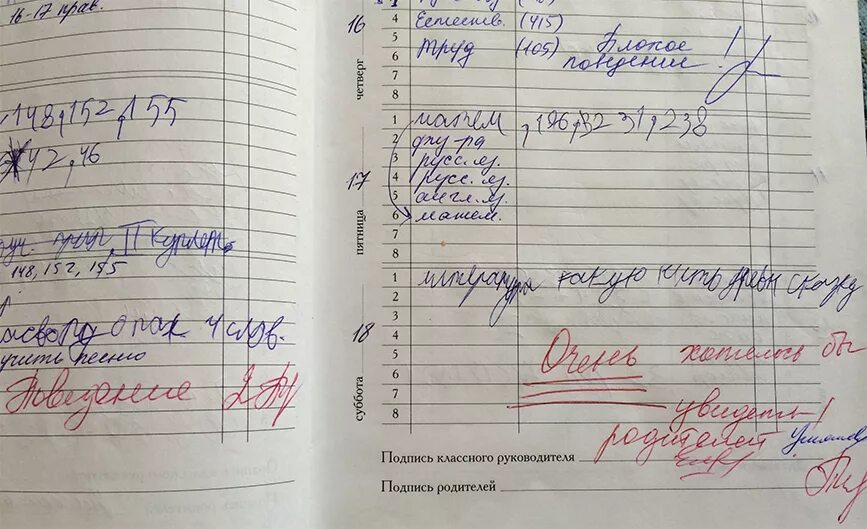 16-17 прав.
148, 152, 155
42, 46
II Куплет
148, 152, 155
4 слов.
учить песню
Поведение 2
16
четверг
4 Естеств. (415)
5
6 труд (105) Плохое
7 поведение!
8
1 матем , 196, 32 31, 238
2 физ-ра
3 русс. яз.
4 русс. яз.
5 англ. яз.
6 матем.
7
8
17
пятница
1 литература какую нить древн сказку
2
3
4
5
6
7
8
18
суббота
Очень хотелось бы
увидеть!
родителей
Подпись классного руководителя
Подпись родителей